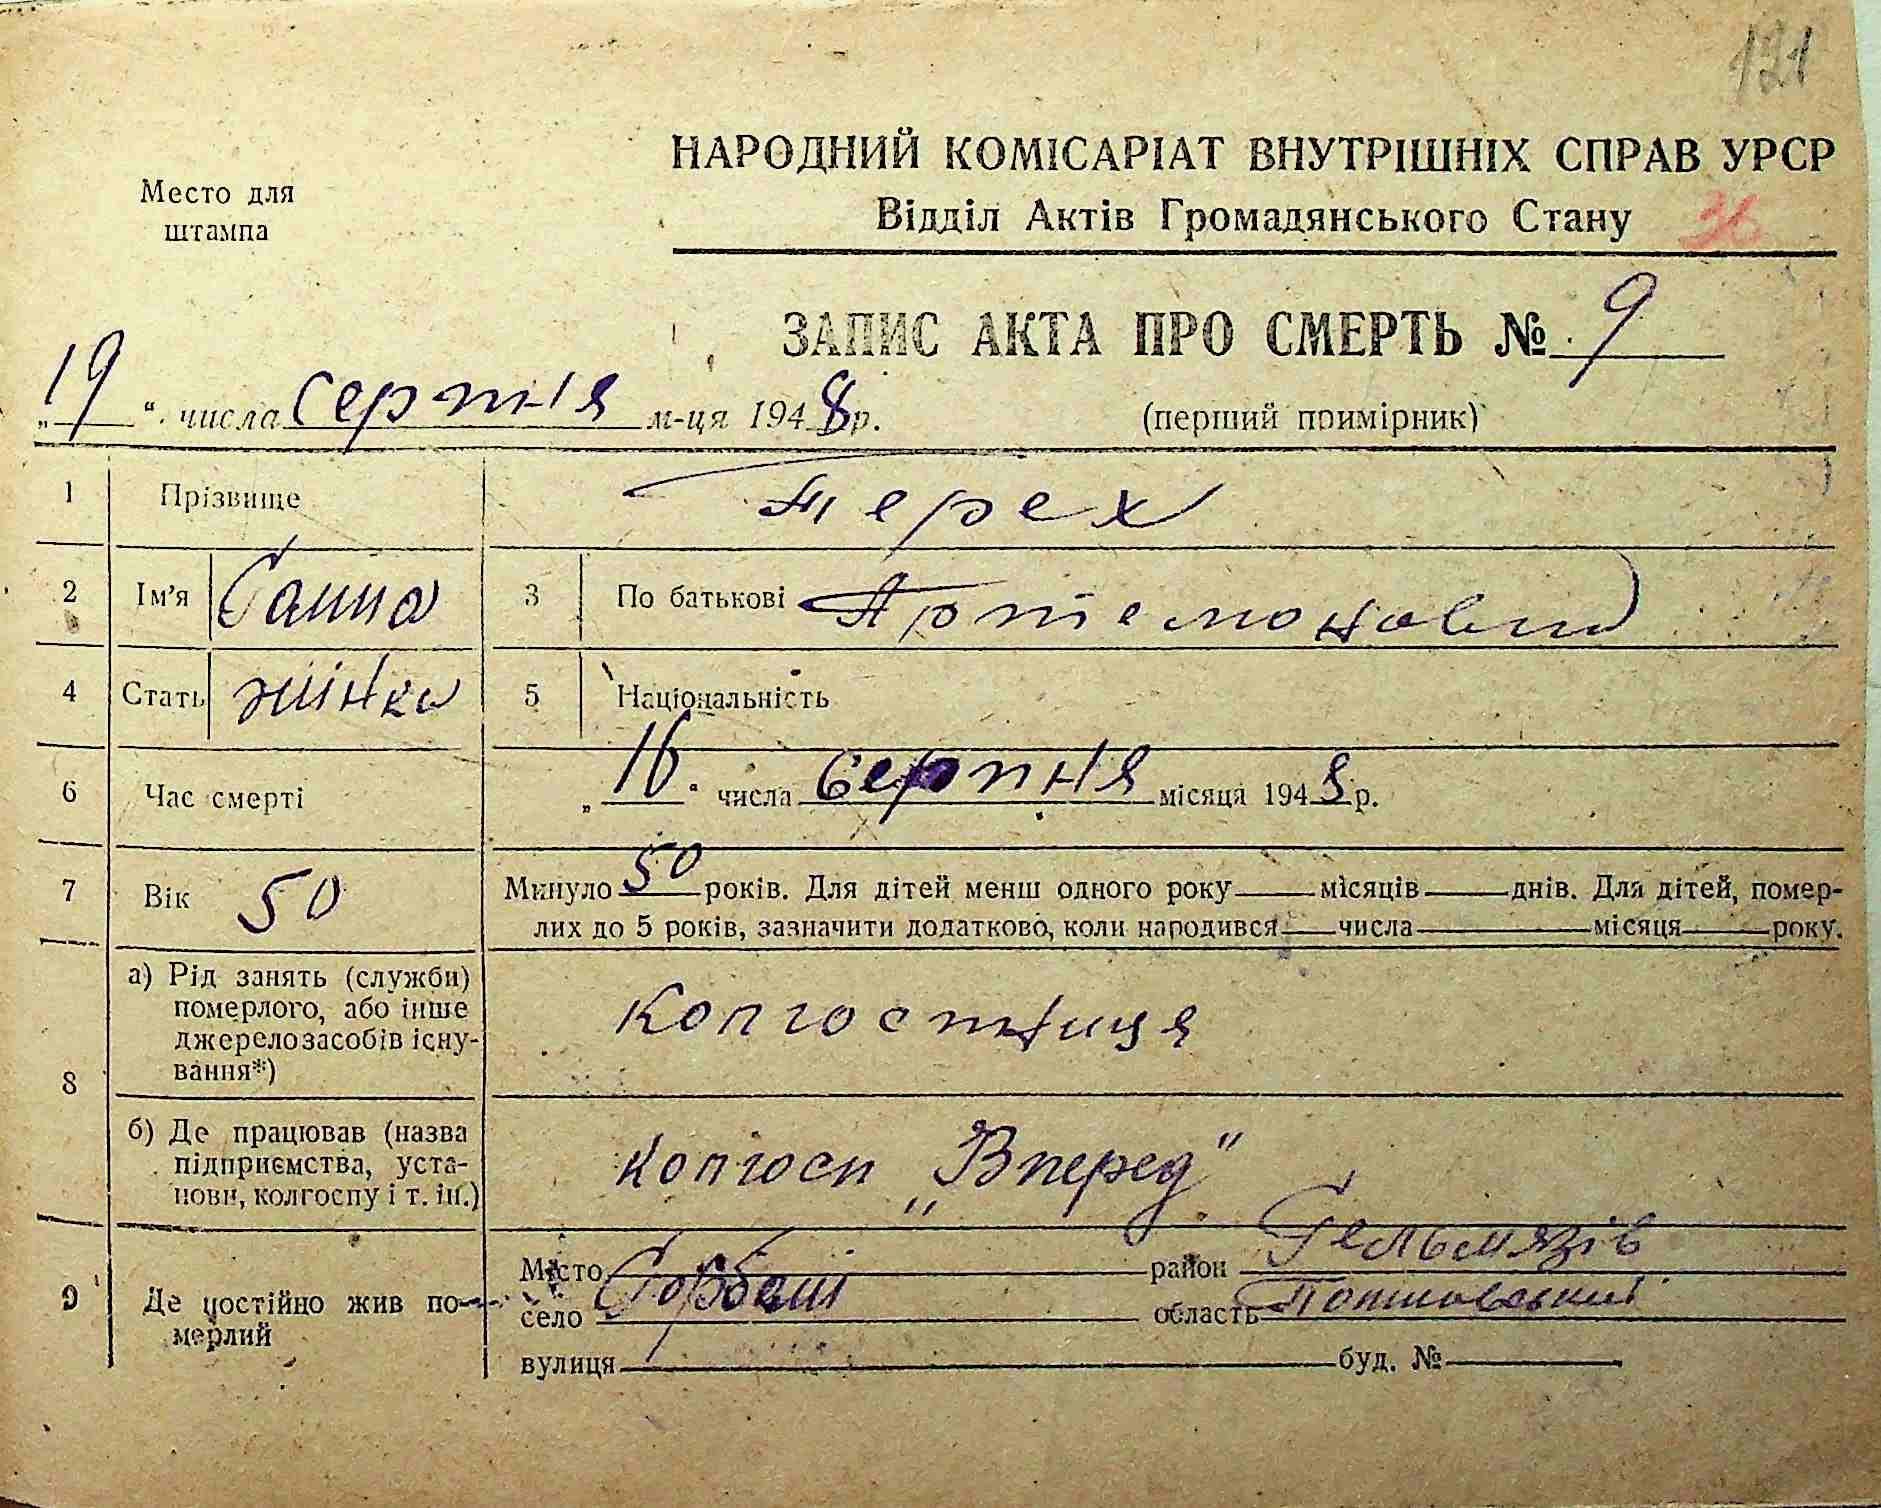 121
НАРОДНИЙ КОМІСАРІАТ ВНУТРІШНІХ СПРАВ УРСР
Место для
штампа
Відділ Актів Громадянського Стану 36
ЗАПИС АКТА ПРО СМЕРТЬ № 9
„19“ числа серпня м-ця 1948 р.
(перший примірник)
1 Прізвище Терех
2 Ім'я Ганна 3 По батькові Артемоновна
4 Стать жінка 5 Національність
6 Час смерті „16“ числа серпня місяця 1948 р.
7 Вік 50 Минуло 50 років. Для дітей менш одного року місяців днів. Для дітей, помер-
лих до 5 років, зазначити додатково, коли народився числа місяця року.
8 а) Рід занять (служби)
померлого, або інше
джерело засобів існу-
вання*)
колгоспниця
б) Де працював (назва
підприємства, уста-
нови, колгоспу і т. ін.)
колгосп „Вперед"
9 Де постійно жив по-
мерлий
Місто район Гельмязів
село Горбані область Полтавський
вулиця буд. №